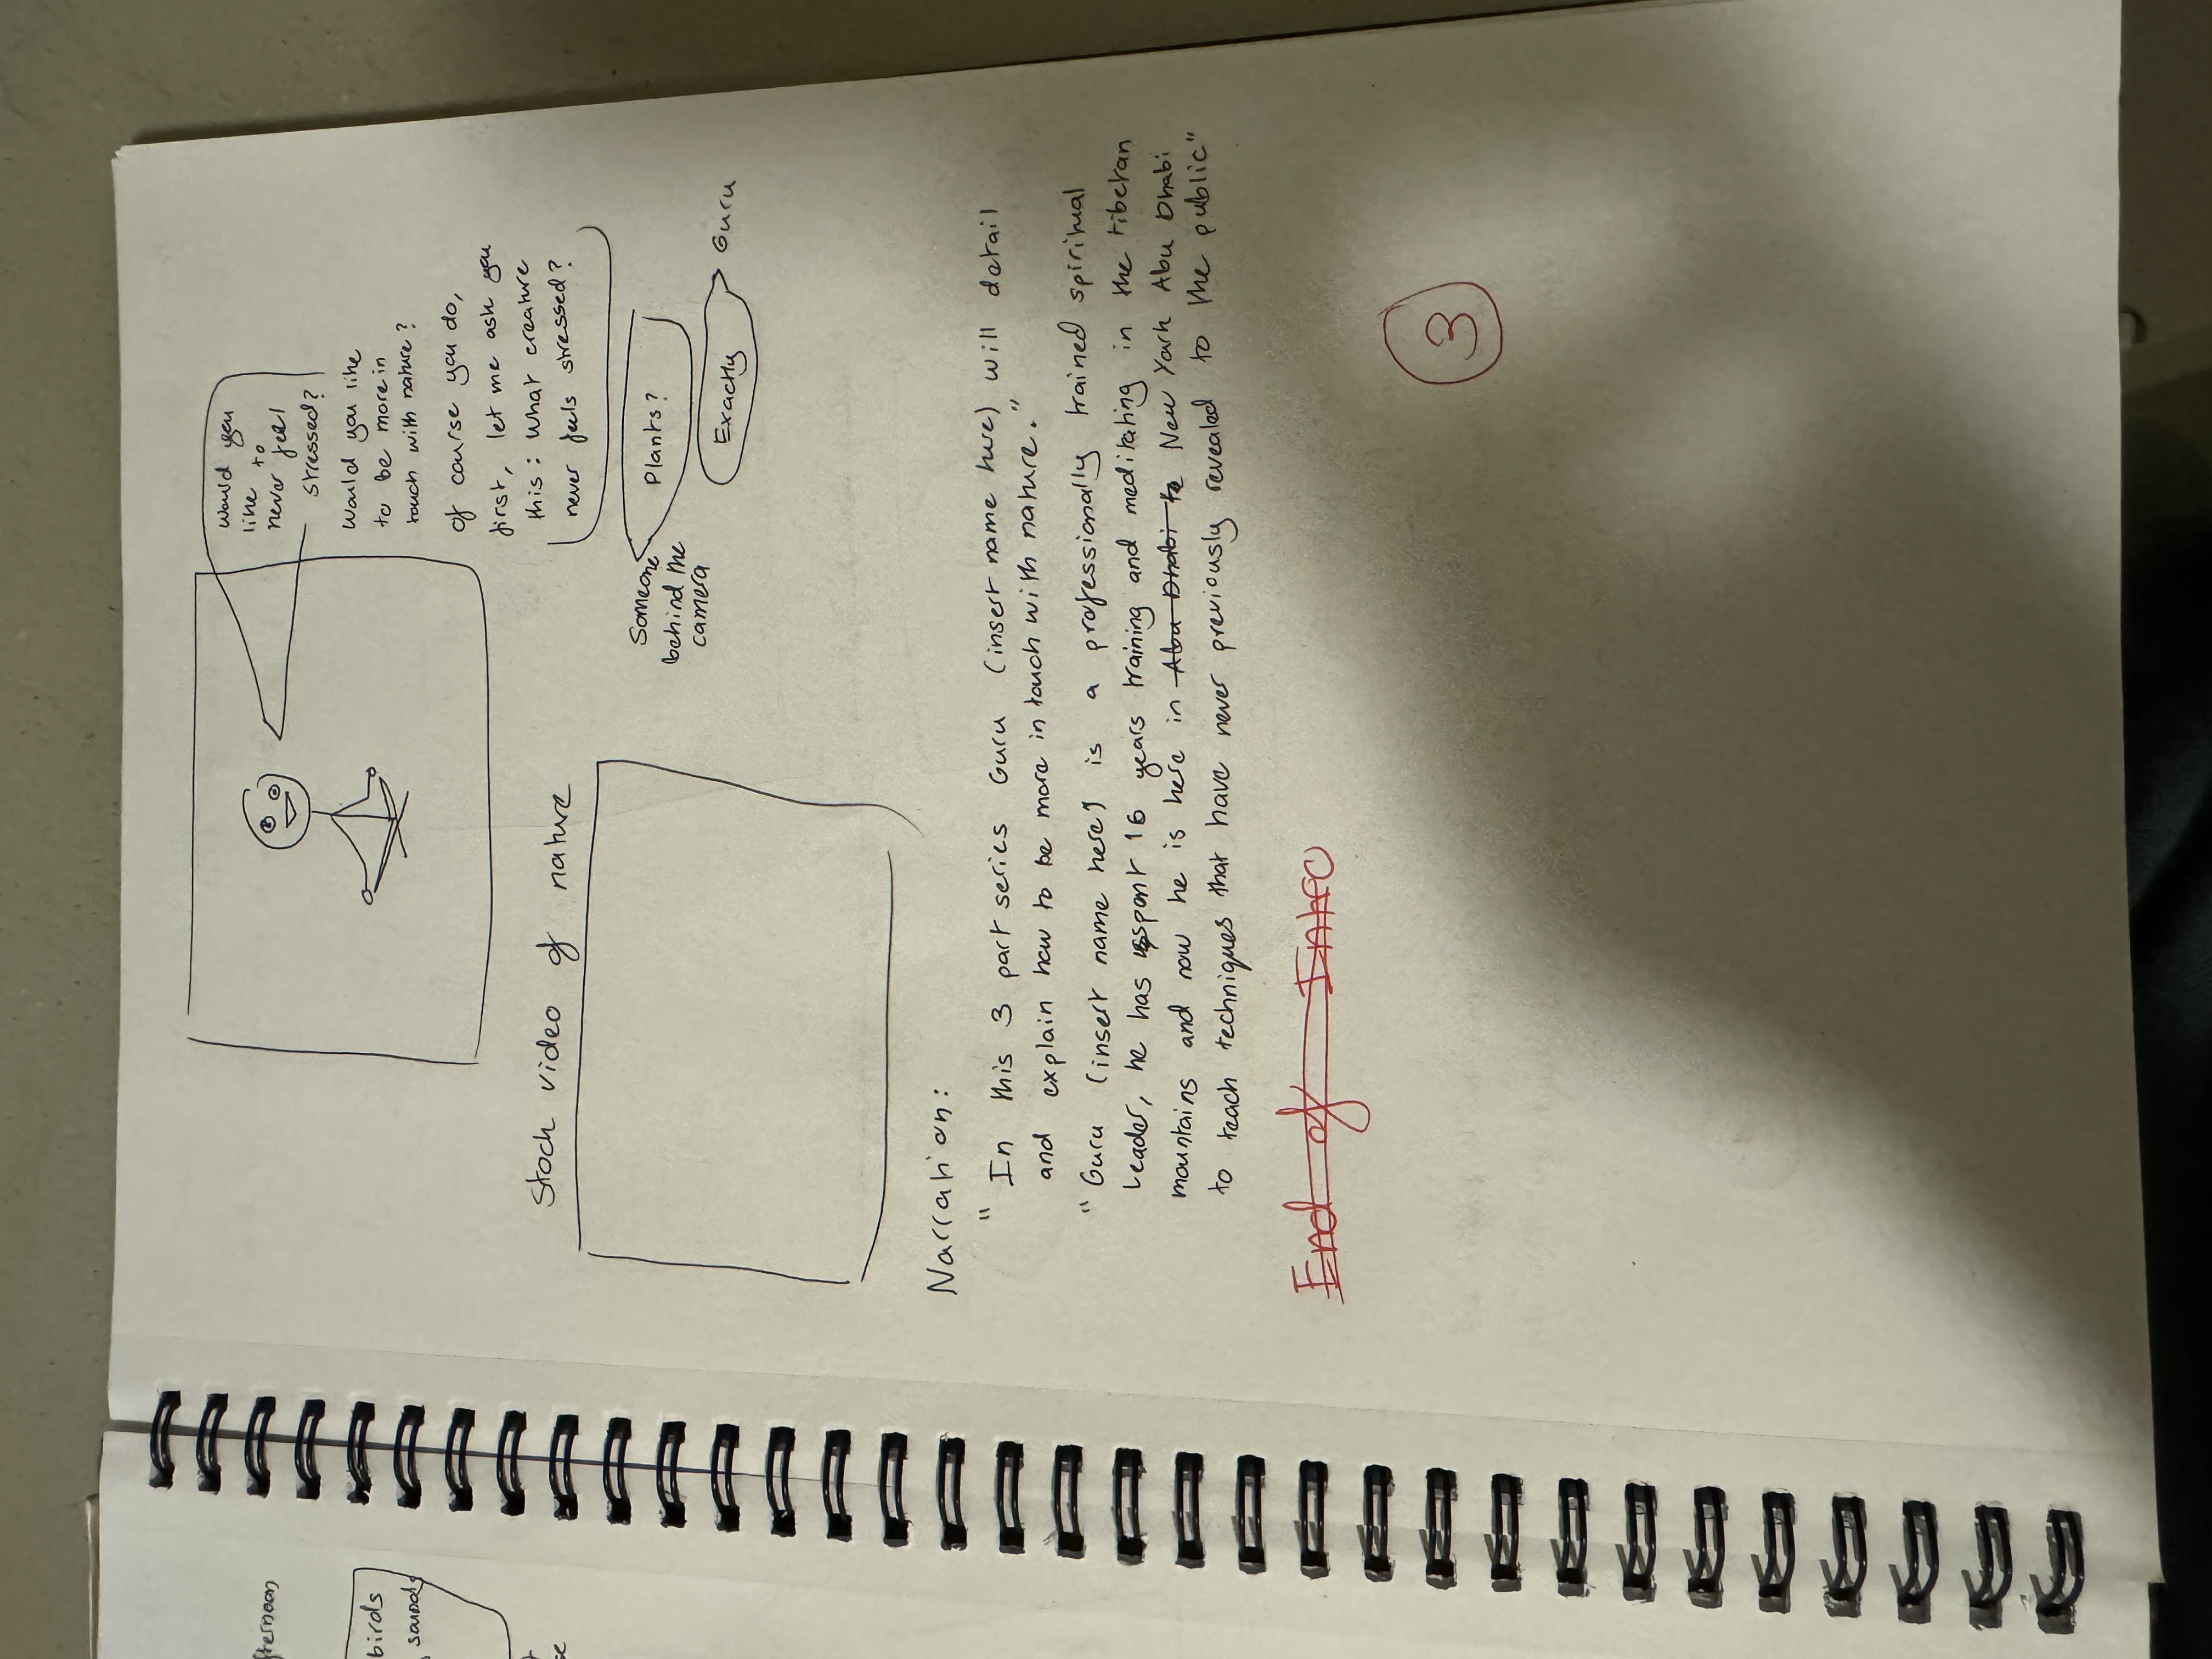 fternoon
birds
sounds
se
would you
like to
never feel
stressed?
would you like
to be more in
touch with nature?
of course you do,
first, let me ask you
this: What creature
never feels stressed?
Stock video of nature
Someone
behind the
camera
Plants?
Exactly
Guru
Narration:
" In this 3 part series Guru (insert name here) will detail
and explain how to be more in touch with nature."
" Guru (insert name here) is a professionally trained spiritual
Leader, he has spent 16 years training and meditating in the tibetan
mountains and now he is here in Abu Dhabi to New York Abu Dhabi
to teach techniques that have never previously revealed to the public"
End of Intro
3